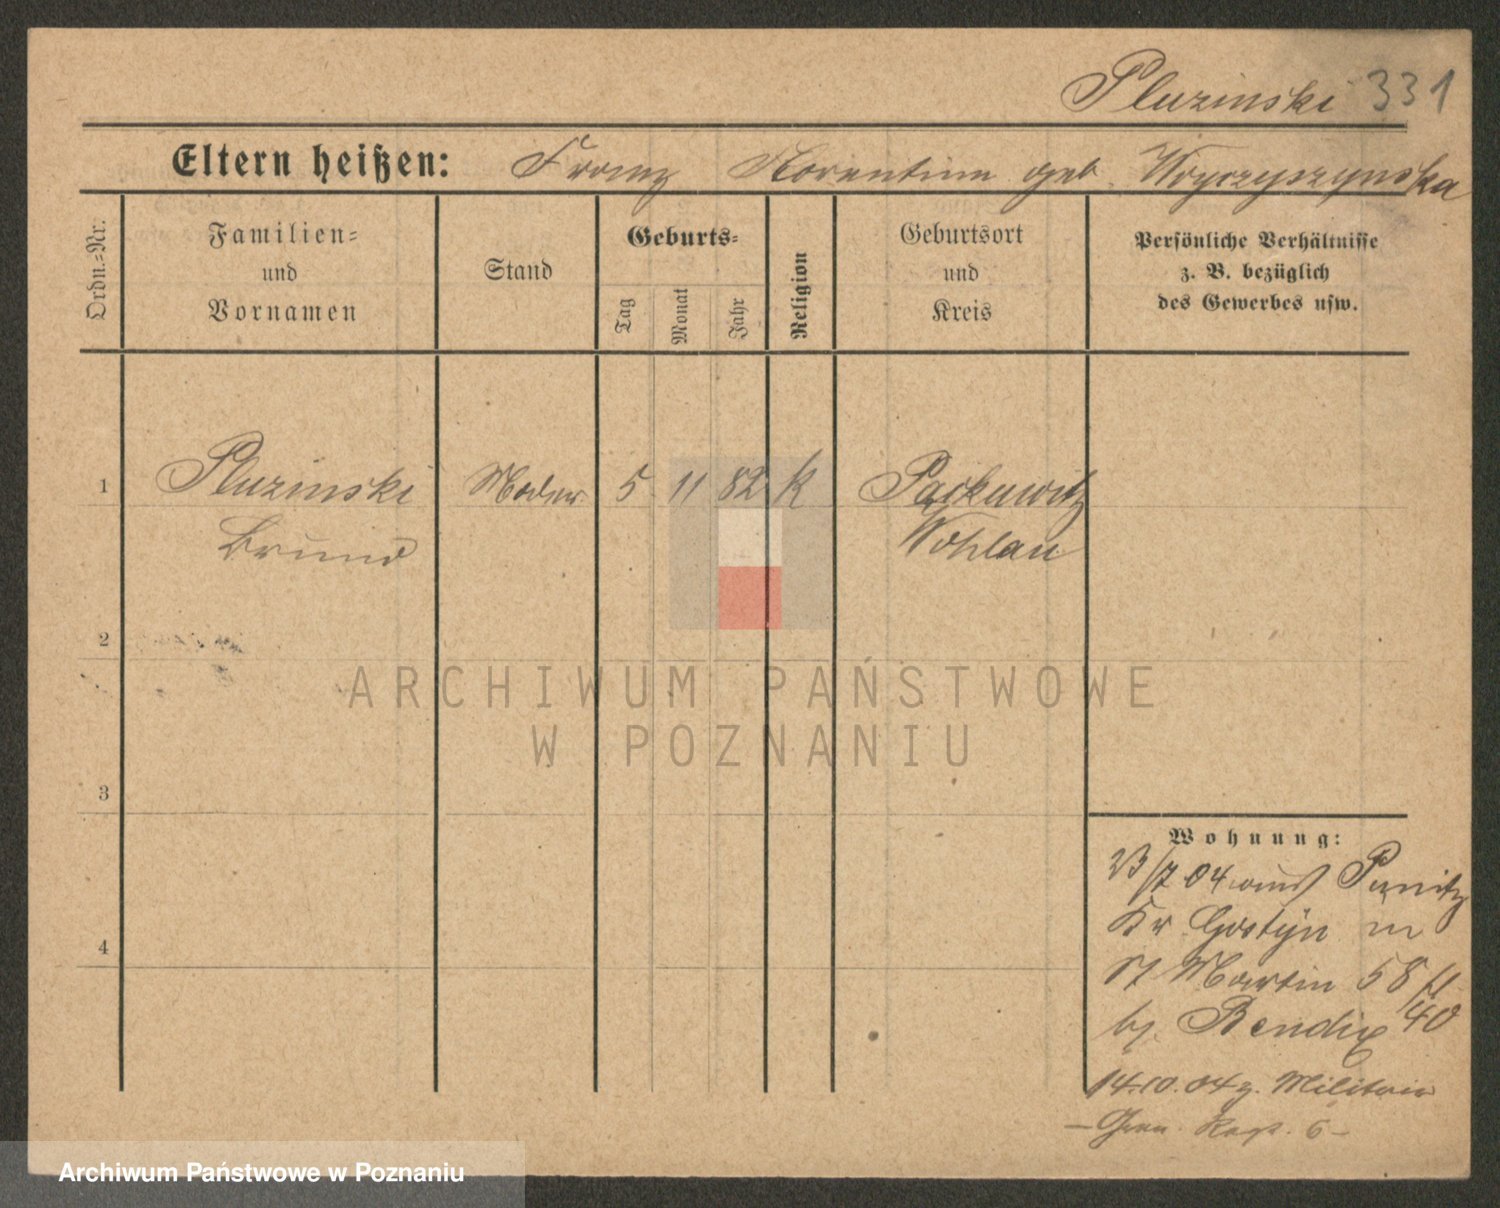 Pluzinski 331
Eltern heißen: Franz Florentine geb. Wryczyszynska
Ordn.-Nr.
Familien-
und
Vornamen
Stand
Geburts-
Tag
Monat
Jahr
Religion
Geburtsort
und
Kreis
Persönliche Verhältnisse
z. B. bezüglich
des Gewerbes usw.
1 Pluzinski 5 11 82 K
Bruno Wohlau
2
3
4
Wohnung:
23/7 04 aus Punitz
Kr Gostÿn in
St Martin 58
bj. Bendix 40
14.10.04 z. Militär
– Gren. Regt. 6 –
ARCHIWUM PAŃSTWOWE
W POZNANIU
Archiwum Państwowe w Poznaniu